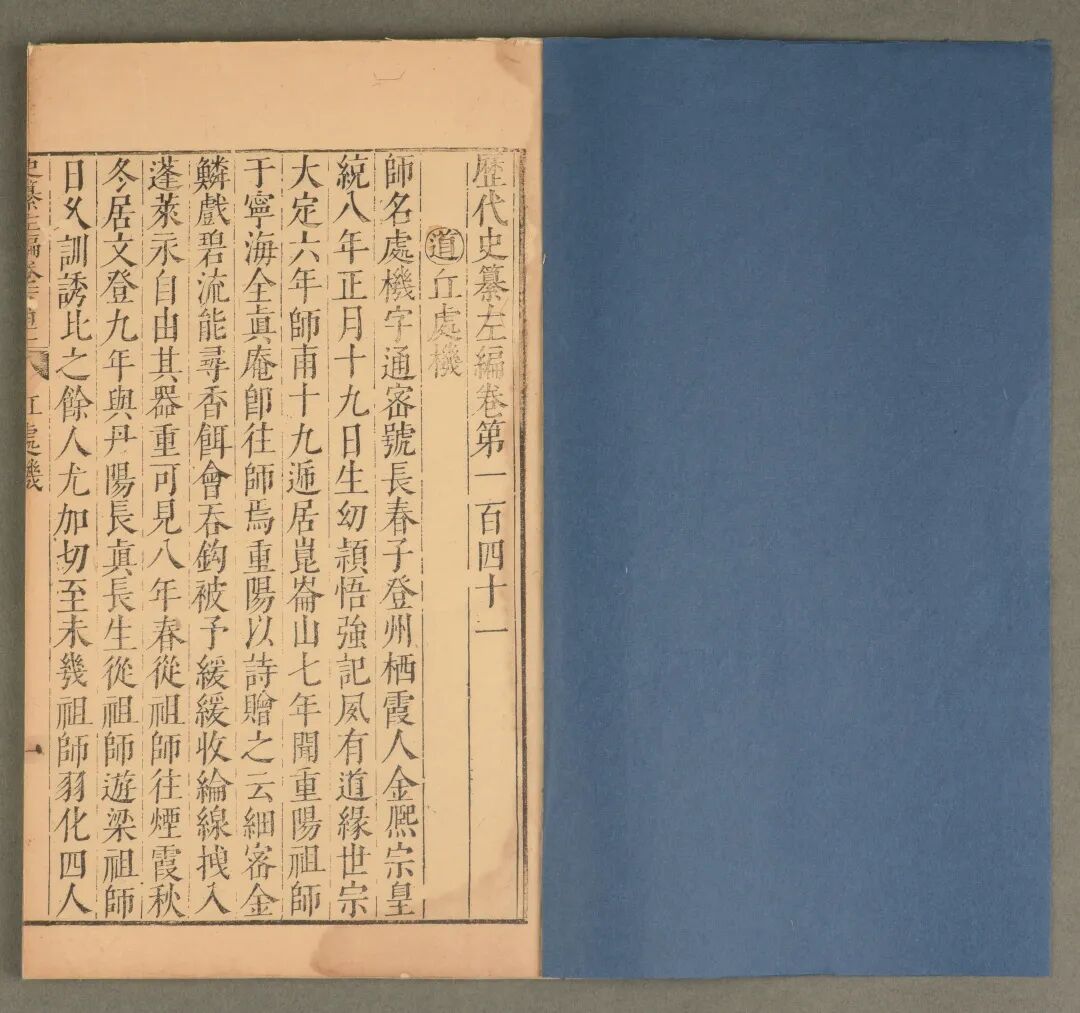 歷代史纂左編卷第一百四十一
道 丘處機
師名處機字通密號長春子登州栖霞人金熈宗皇
統八年正月十九日生幼頴悟強記夙有道緣世宗
大定六年師甫十九遁居崑崙山七年聞重陽祖師
于寧海全眞庵卽往師焉重陽以詩贈之云細密金
鱗戲碧流能尋香餌會吞鈎被予緩緩收綸線拽入
蓬萊永自由其器重可見八年春從祖師往煙霞秋
冬居文登九年與丹陽長眞長生從祖師遊梁祖師
日夕訓誘比之餘人尤加切至未幾祖師羽化四人
史纂左編卷 丘處機 一